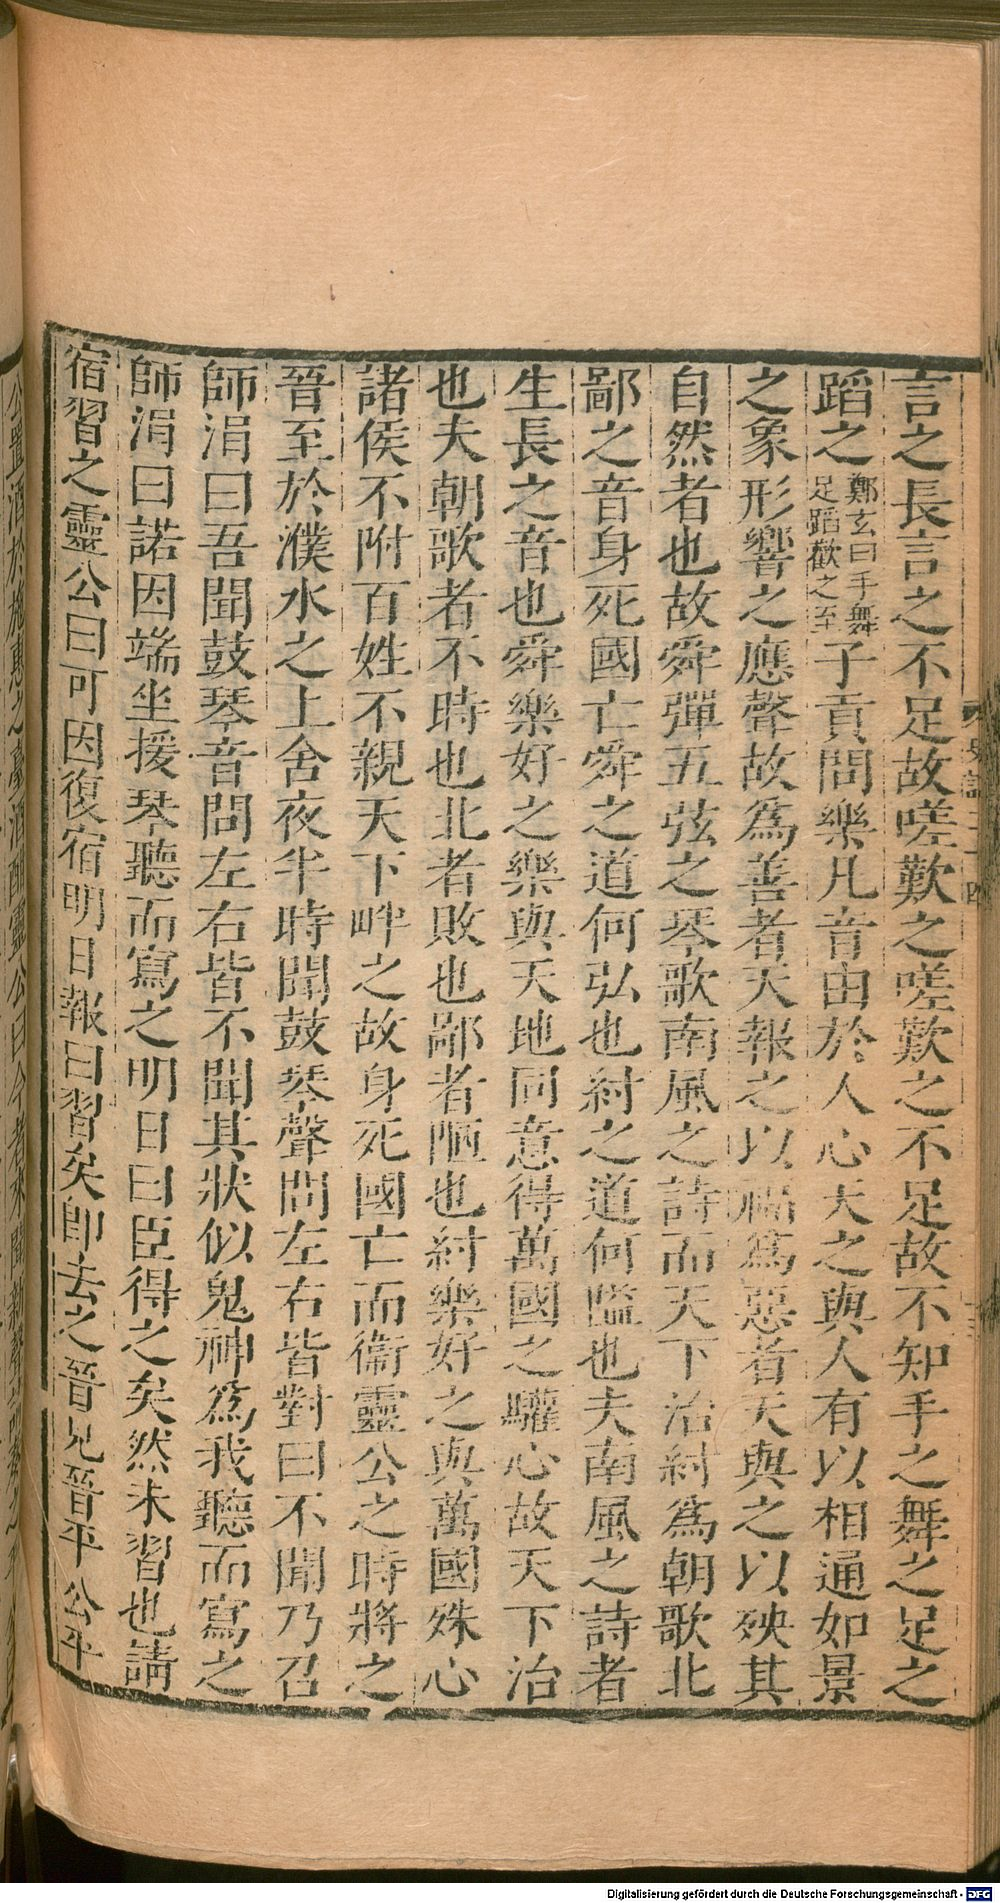 言之長言之不足故嗟歎之嗟歎之不足故不知手之舞之足之
蹈之鄭玄曰手舞足蹈歡之至子貢問樂凡音由於人心天之與人有以相通如景
之象形響之應聲故爲善者天報之以福爲惡者天與之以殃其
自然者也故舜彈五弦之琴歌南風之詩而天下治紂爲朝歌北
鄙之音身死國亡舜之道何弘也紂之道何隘也夫南風之詩者
生長之音也舜樂好之樂與天地同意得萬國之驩心故天下治
也夫朝歌者不時也北者敗也鄙者陋也紂樂好之與萬國殊心
諸侯不附百姓不親天下畔之故身死國亡而衞靈公之時將之
晉至於濮水之上舍夜半時聞鼓琴聲問左右皆對曰不聞乃召
師涓曰吾聞鼓琴音問左右皆不聞其狀似鬼神爲我聽而寫之
師涓曰諾因端坐援琴聽而寫之明日曰臣得之矣然未習也請
宿習之靈公曰可因復宿明日報曰習矣卽去之晉見晉平公平
公置酒於施惠之臺酒酣靈公曰今者來聞新聲
Digitalisierung gefördert durch die Deutsche Forschungsgemeinschaft - DFG